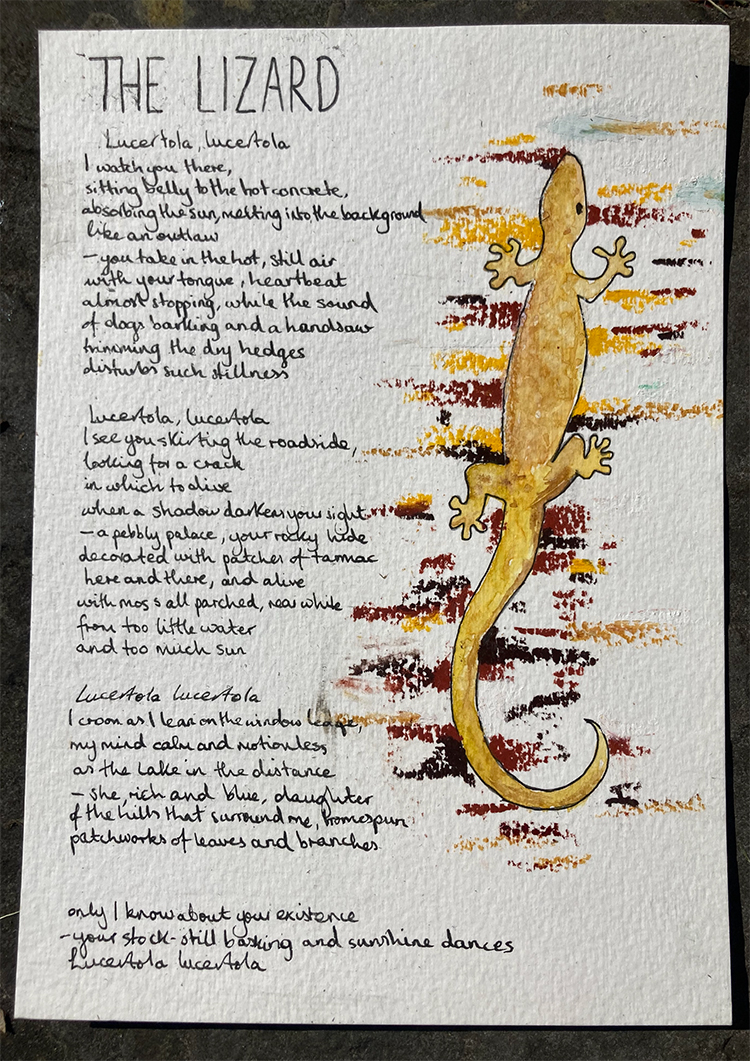 THE LIZARD
Lucertola, lucertola
I watch you there,
sitting belly to the hot concrete,
absorbing the sun, melting into the background
like an outlaw
– you take in the hot, still air
with your tongue, heartbeat
almost stopping, while the sound
of dogs barking and a handsaw
trimming the dry hedges
disturbs such stillness
Lucertola, lucertola
I see you skirting the roadside,
looking for a crack
in which to dive
when a shadow darkens your sight
– a pebbly palace, your rocky hide
decorated with patches of tarmac
here and there, and alive
with moss all parched, now white
from too little water
and too much sun
Lucertola lucertola
I croon as I lean on the window ledge,
my mind calm and motionless
as the lake in the distance
– she, rich and blue, daughter
of the hills that surround me, homespun
patchworks of leaves and branches
only I know about your existence
– your stock-still basking and sunshine dances
Lucertola lucertola